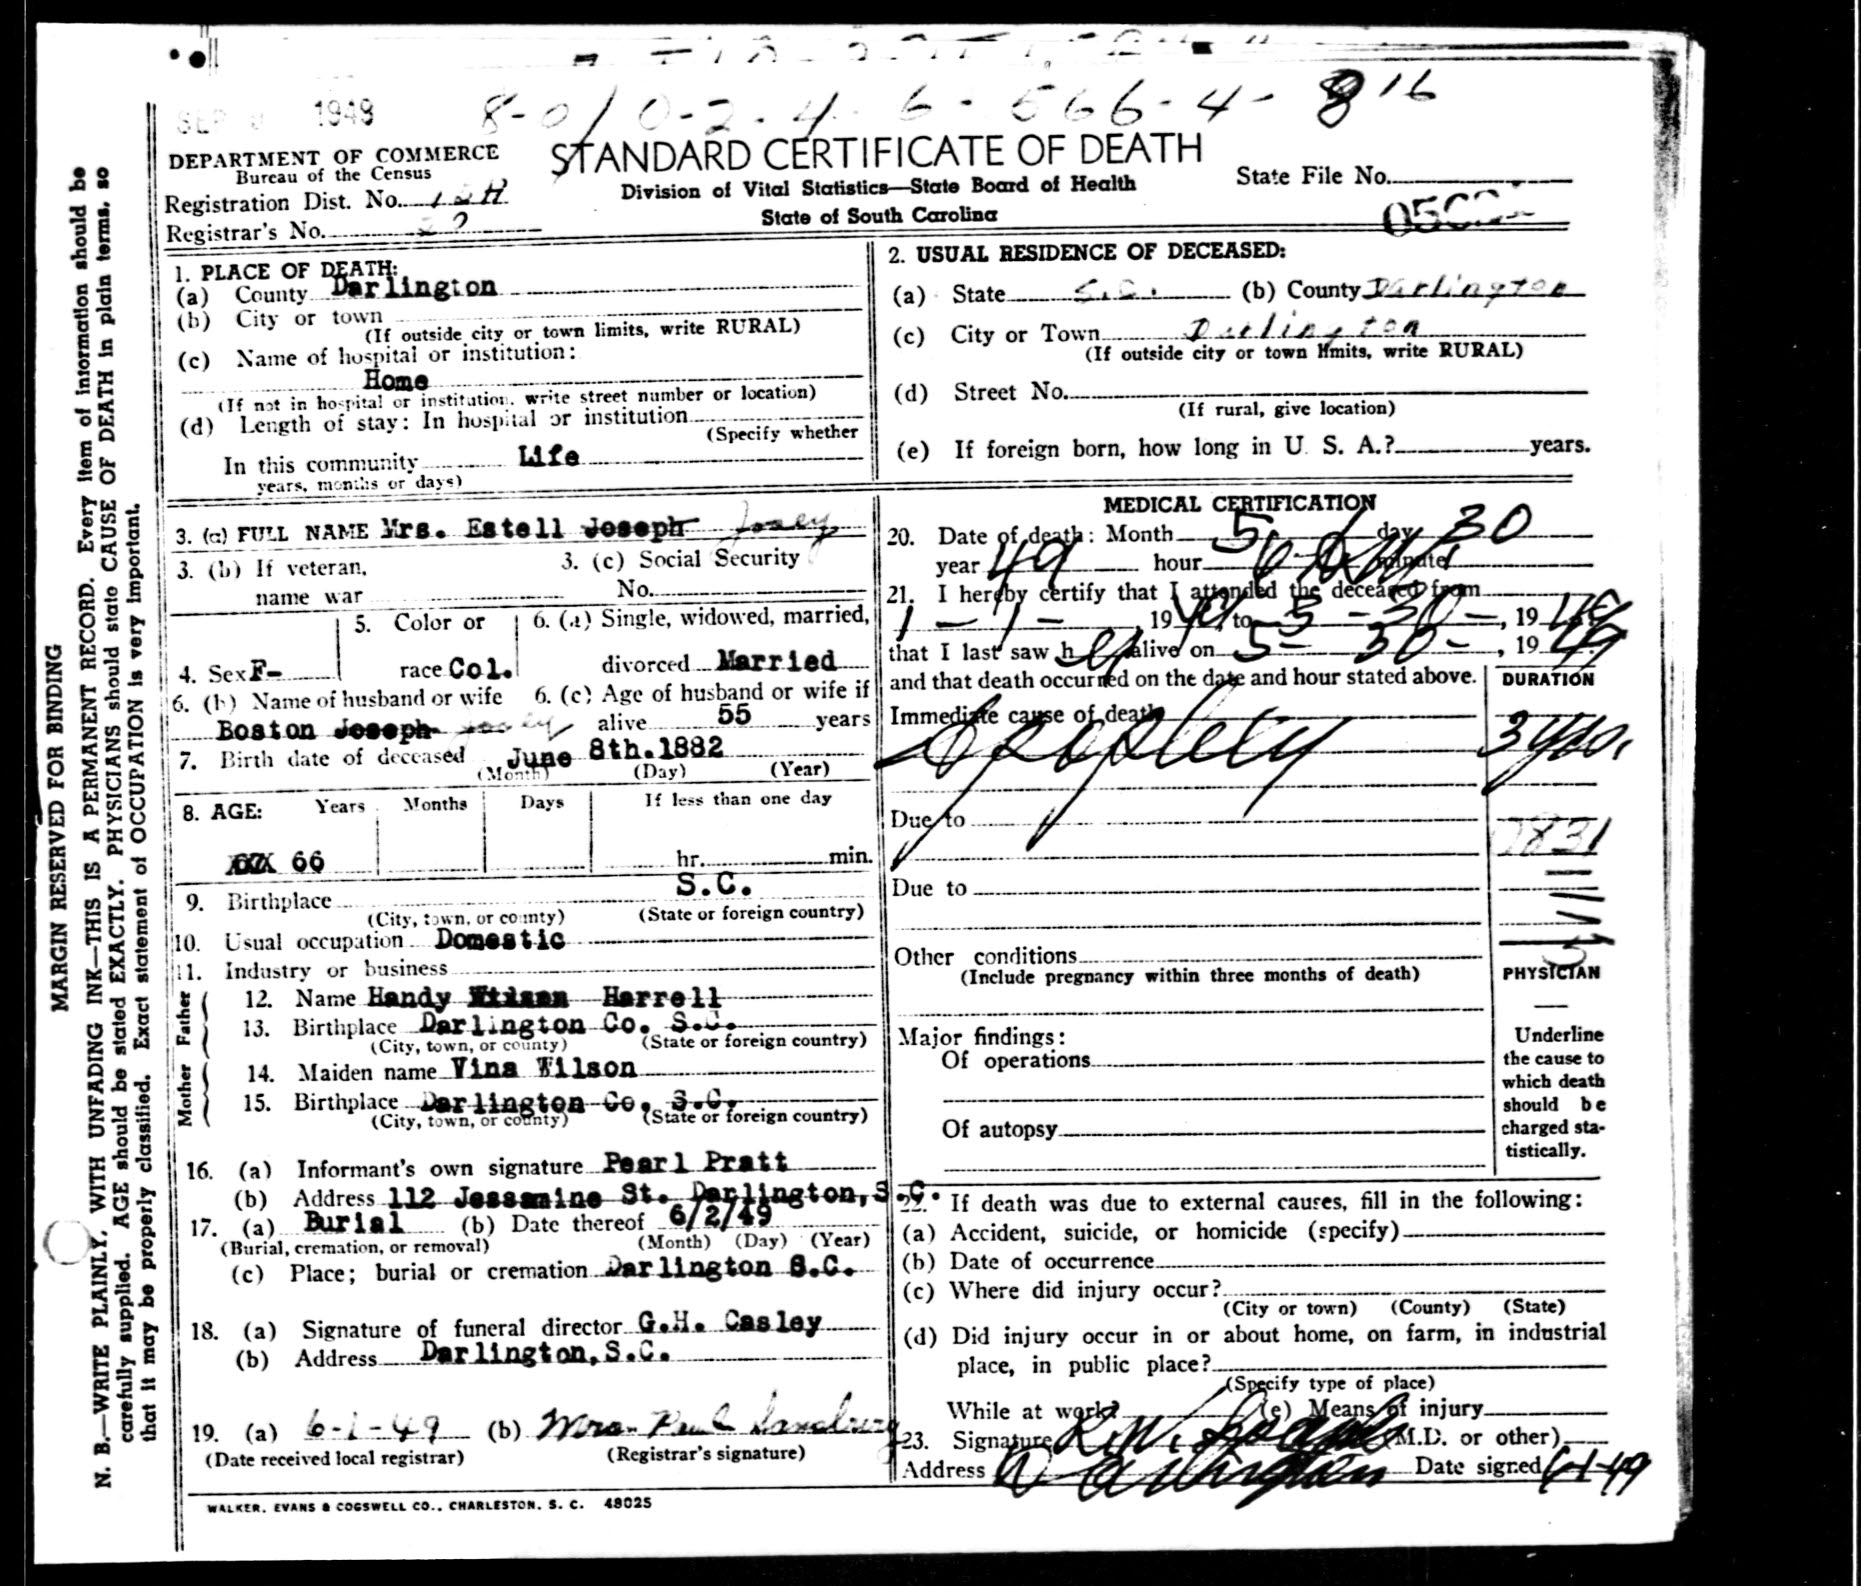 SEP 1949
8-010-2-4-6-566-4-816
DEPARTMENT OF COMMERCE
Bureau of the Census
STANDARD CERTIFICATE OF DEATH
Division of Vital Statistics—State Board of Health
State of South Carolina
State File No.
Registration Dist. No.
Registrar's No.
MARGIN RESERVED FOR BINDING
N. B.—WRITE PLAINLY, WITH UNFADING INK—THIS IS A PERMANENT RECORD. Every item of information should be
carefully supplied. AGE should be stated EXACTLY. PHYSICIANS should state CAUSE OF DEATH in plain terms, so
that it may be properly classified. Exact statement of OCCUPATION is very important.
1. PLACE OF DEATH:
(a) County Darlington
(b) City or town
(If outside city or town limits, write RURAL)
(c) Name of hospital or institution:
Home
(If not in hospital or institution, write street number or location)
(d) Length of stay: In hospital or institution
(Specify whether
In this community Life
years, months or days)
2. USUAL RESIDENCE OF DECEASED:
(a) State S.C. (b) County Darlington
(c) City or Town Darlington
(If outside city or town limits, write RURAL)
(d) Street No.
(If rural, give location)
(e) If foreign born, how long in U. S. A.? years.
3. (a) FULL NAME Mrs. Estell Joseph Josey
3. (b) If veteran, 3. (c) Social Security
name war No.
4. Sex F- 5. Color or race Col. 6. (a) Single, widowed, married,
divorced Married
6. (b) Name of husband or wife 6. (c) Age of husband or wife if
Boston Joseph Josey alive 55 years
7. Birth date of deceased June 8th. 1882
(Month) (Day) (Year)
8. AGE: Years Months Days If less than one day
66 hr. min.
9. Birthplace S.C.
(City, town, or county) (State or foreign country)
10. Usual occupation Domestic
11. Industry or business
Father
12. Name Handy Wilson Harrell
13. Birthplace Darlington Co. S.C.
(City, town, or county) (State or foreign country)
Mother
14. Maiden name Vina Wilson
15. Birthplace Darlington Co. S.C.
(City, town, or county) (State or foreign country)
16. (a) Informant's own signature Pearl Pratt
(b) Address 112 Jessamine St. Darlington, S.C.
17. (a) Burial (b) Date thereof 6/2/49
(Burial, cremation, or removal) (Month) (Day) (Year)
(c) Place; burial or cremation Darlington S.C.
18. (a) Signature of funeral director G.H. Casley
(b) Address Darlington, S.C.
19. (a) 6-1-49 (b) Mrs. Paul Sansbury
(Date received local registrar) (Registrar's signature)
MEDICAL CERTIFICATION
20. Date of death: Month 5 day 30
year 49 hour 6 minute
21. I hereby certify that I attended the deceased from
1-1-, 19 to 5-30-, 1949
that I last saw her alive on 5-30-, 1949
and that death occurred on the date and hour stated above.
DURATION
Immediate cause of death
3 yrs.
Due to
7831
Due to
Other conditions
(Include pregnancy within three months of death)
PHYSICIAN
Major findings:
Of operations
Of autopsy
Underline
the cause to
which death
should be
charged sta-
tistically.
22. If death was due to external causes, fill in the following:
(a) Accident, suicide, or homicide (specify)
(b) Date of occurrence
(c) Where did injury occur?
(City or town) (County) (State)
(d) Did injury occur in or about home, on farm, in industrial
place, in public place?
(Specify type of place)
While at work? (e) Means of injury
23. Signature (M.D. or other)
Address Darlington Date signed 6-1-49
WALKER, EVANS & COGSWELL CO., CHARLESTON, S. C. 48025